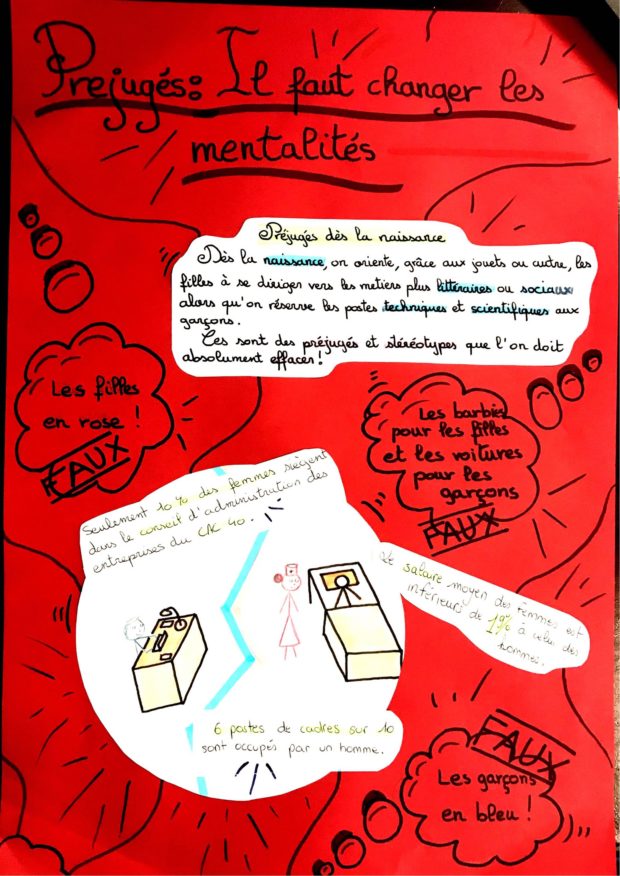 Prejugés: Il faut changer les
mentalités
Préjugés dès la naissance
Dès la naissance, on oriente, grâce aux jouets ou autre, les
filles à se diriger vers les metiers plus littéraires ou sociaux
alors qu'on réserve les postes techniques et scientifiques aux
garçons.
Ces sont des préjugés et stéréotypes que l'on doit
absolument effacer!
Les filles
en rose !
FAUX
Les barbies
pour les filles
et les voitures
pour les
garçons
FAUX
Seulement 10% des femmes siègent
dans le conseil d'administration des
entreprises du CAC 40.
Le salaire moyen des femmes est
inférieurs de 19% à celui des
hommes.
6 postes de cadres sur 10
sont occupés par un homme.
FAUX
Les garçons
en bleu !